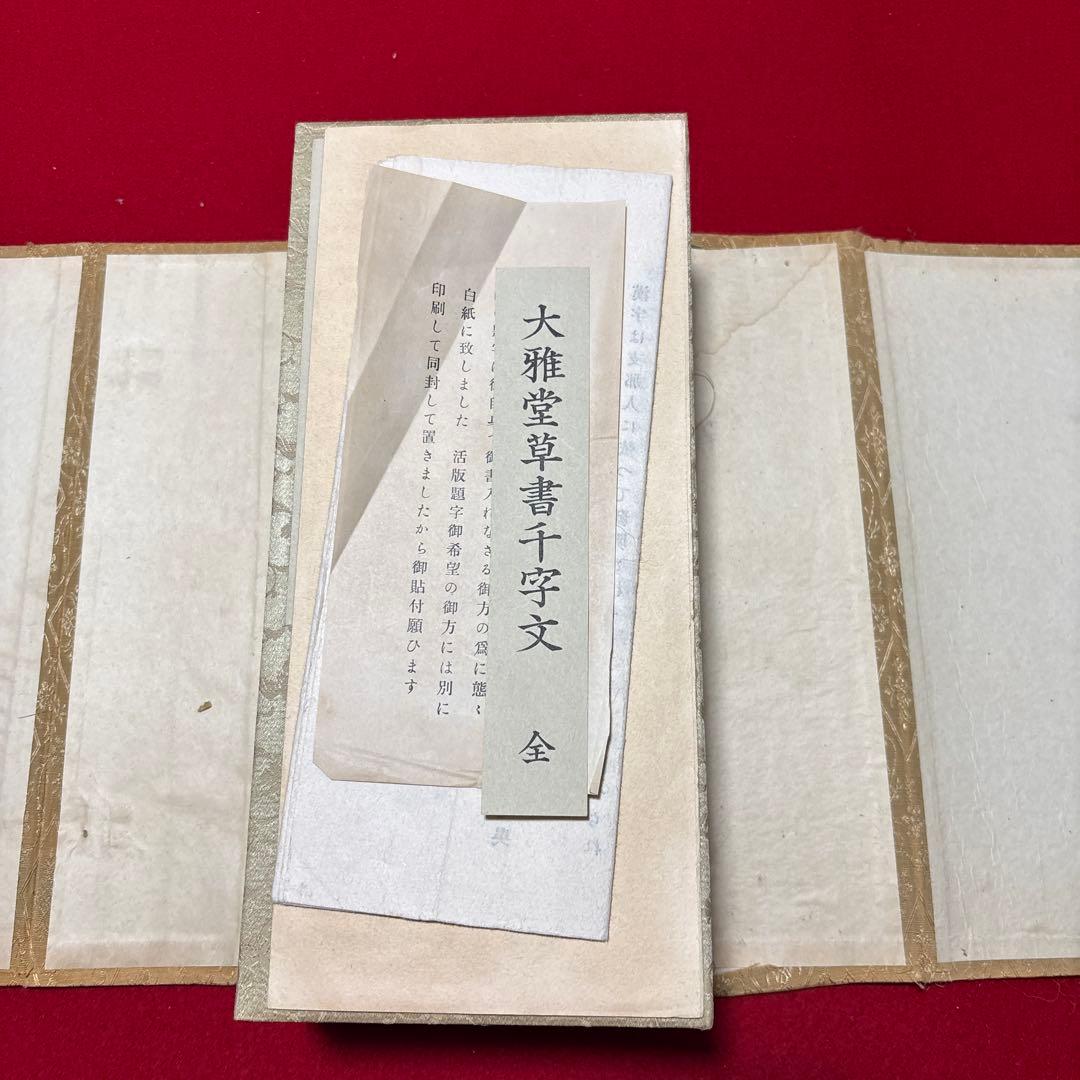 大雅堂草書千字文 全
御書入れなさる御方の爲に態〻
白紙に致しました 活版題字御希望の御方には別に
印刷して同封して置きましたから御貼付願ひます
漢字は支那人に